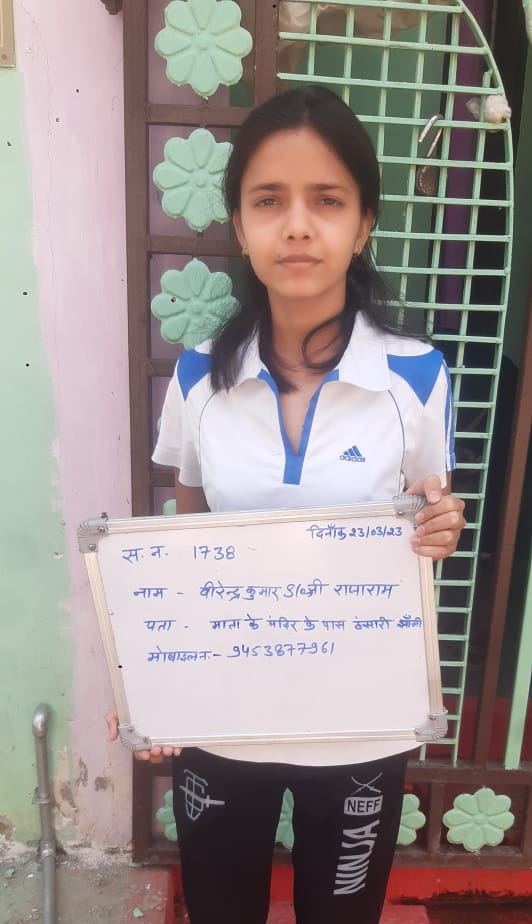 दिनाँक 23/03/23
स. न. 1738
नाम - वीरेन्द्र कुमार S/o श्री राजाराम
पता - माता के मंदिर के पास हंसारी झाँसी
मोबाइल न. - 9453877961
adidas
NEFF
NINJA